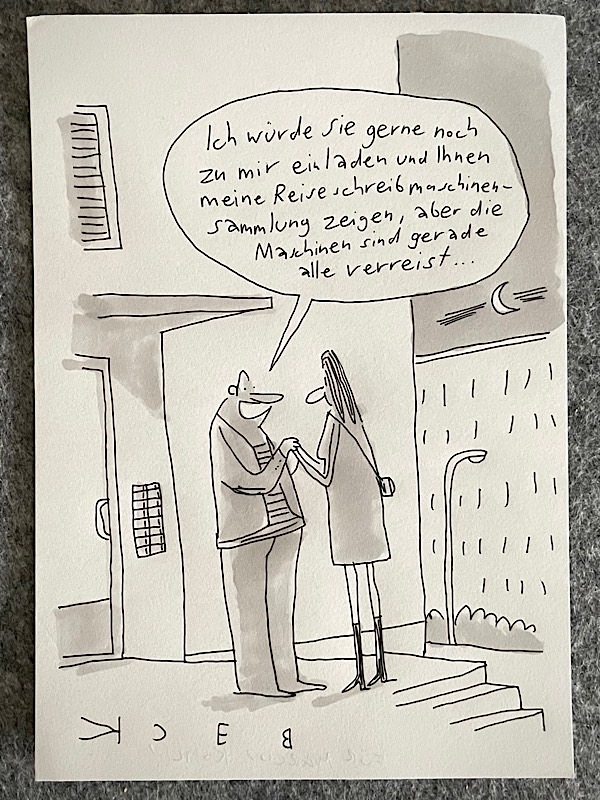 Ich würde Sie gerne noch
zu mir einladen und Ihnen
meine Reiseschreibmaschinen-
sammlung zeigen, aber die
Maschinen sind gerade
alle verreist...
BECK